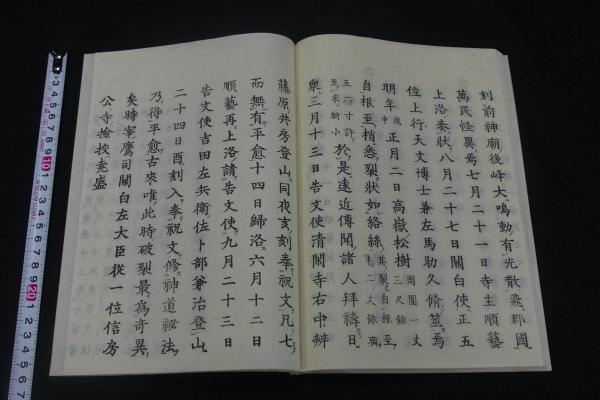 刻前神廟後峰大鳴動有光散飛郡國
萬民怪異焉七月二十一日寺主順藝
上洛奏狀八月二十七日關白使正五
位上行天文博士兼左馬助久脩莅焉
明年戊申正月二日高嶽松樹周圍一丈三尺餘
自根至梢悉裂狀如絡絲其裂自根至二丈餘廣
五六寸許至末漸小於是遠近傳聞諸人拜禱日
衆三月十三日告文使清閑寺右中辨
藤原共房登山同夜亥刻奉祝文凡七
而無有平愈十四日歸洛六月十二日
順藝再上洛請告文使九月二十三日
告文使吉田左兵衛佐卜部兼治登山
二十四日酉刻入奉祝文修神道秘法
乃得平愈古來唯此時破裂最爲奇異
矣時寀鷹司關白左大臣從一位信房
公寺撿挍堯盛